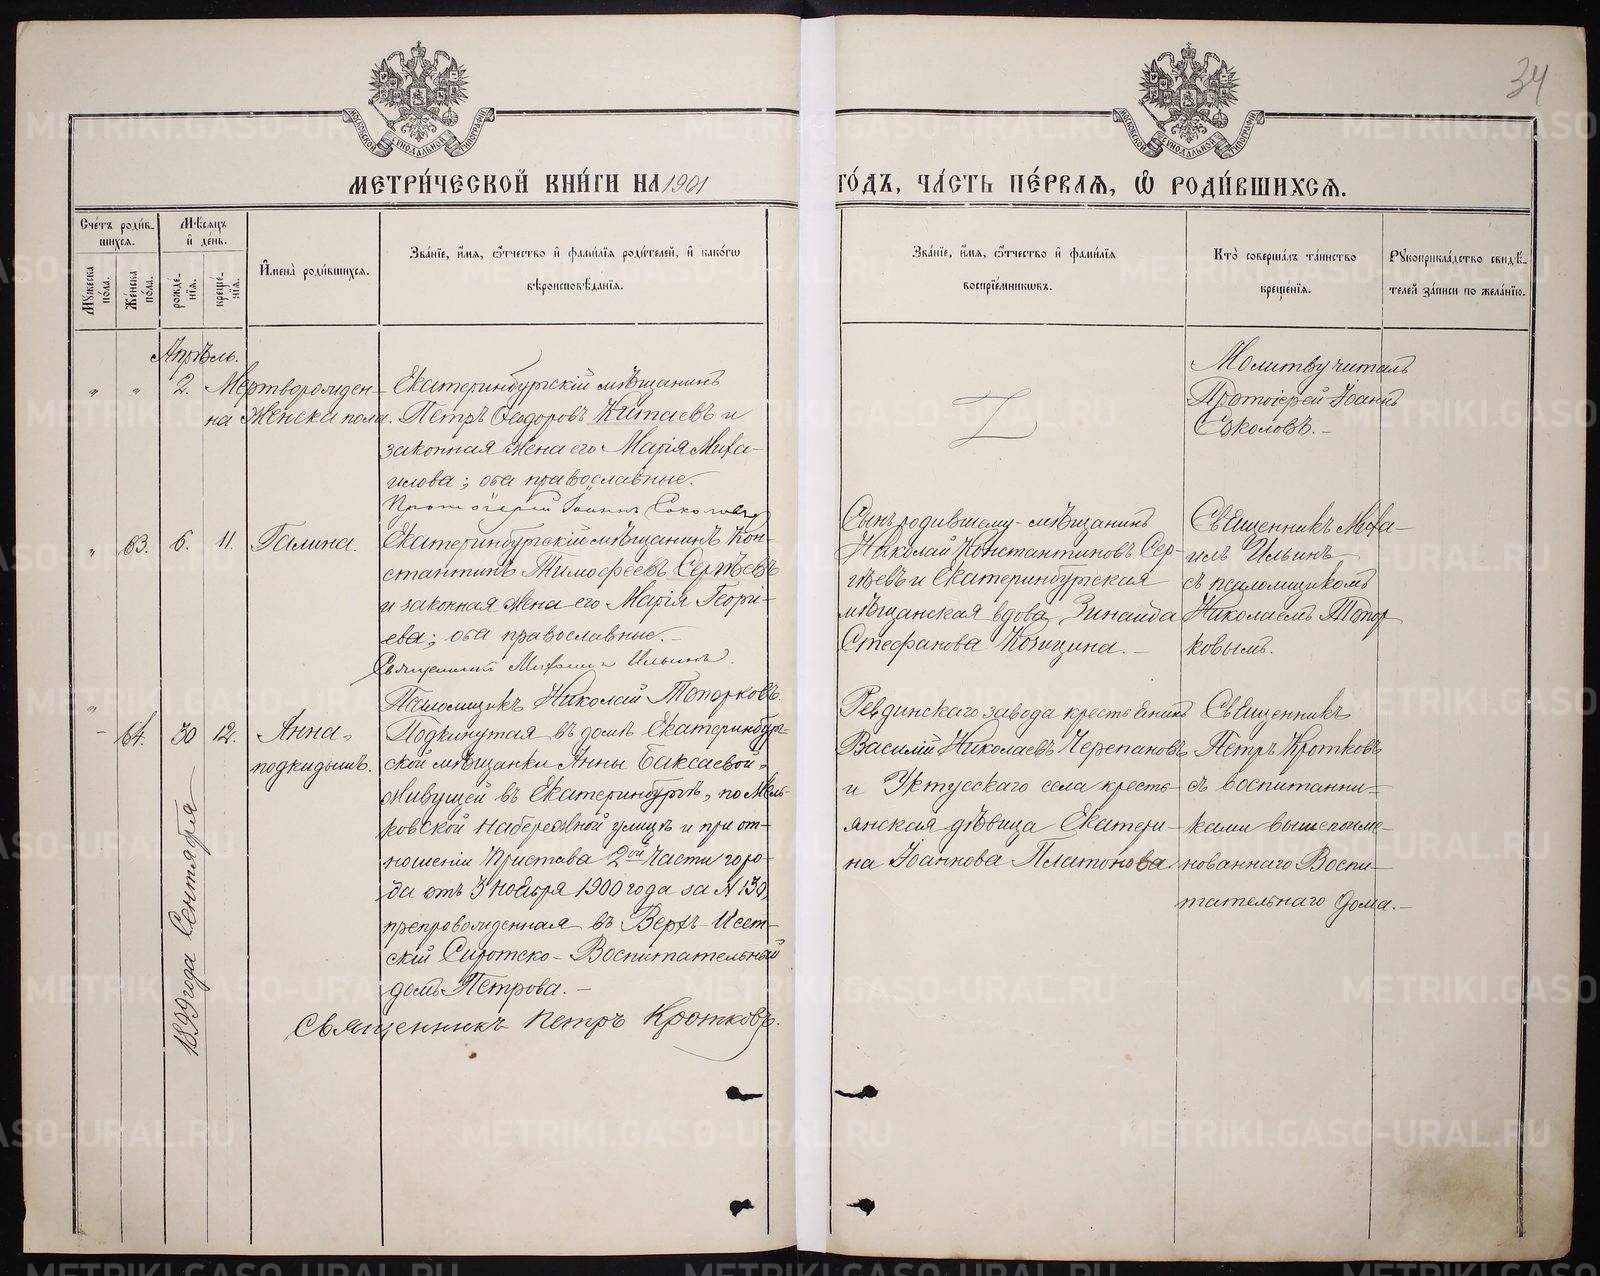 34
МЕТРИ́ЧЕСКОЙ КНИ́ГИ НА 1901 ГО́ДЪ, ЧА́СТЬ ПЕ́РВАѦ, Ѡ҆ РОДИ́ВШИХСѦ.
Сче́тъ роди́в-
шихсѧ.
Мꙋ́жеска по́ла.
Же́нска по́ла.
Мѣ́сѧцъ и҆ де́нь.
рожде́-
нїѧ.
креще́-
нїѧ.
И҆мена̀ роди́вшихсѧ.
Зва́нїе, и҆́мѧ, ѻ҆́тчество и҆ фами́лїѧ роди́телей, и҆ како́гѡ
вѣроисповѣ́данїѧ.
Зва́нїе, и҆́мѧ, ѻ҆́тчество и҆ фами́лїѧ
воспрїе́мникѡвъ.
Кто̀ соверша́лъ та́инство
креще́нїѧ.
Рꙋкоприкла́дство свидѣ́-
телей за́писи по жела́нїю.
Апрѣль.
" " 2. Мертворожден-
на Женска пола.
Екатеринбургскій мѣщанинъ
Петръ Ѳеодоровъ Китаевъ и
законная жена его Марія Миха-
илова; оба православные.
Протоіерей Іоаннъ Соколовъ
Молитву читалъ
Протоіерей Іоаннъ
Соколовъ.-
" 63. 6. 11. Галина.
Екатеринбургскій мѣщанинъ Кон-
стантинъ Тимофеевъ Сергѣевъ
и законная жена его Марія Георгі-
ева; оба православные.-
Священникъ Михаилъ Ильинъ.
Псаломщикъ Николай Топорковъ.
Сынъ родившему - мѣщанинъ
Николай Константиновъ Сер-
гѣевъ и Екатеринбургская
мѣщанская вдова Зинаида
Стефанова Козицина.-
Священникъ Миха-
илъ Ильинъ
съ псаломщикомъ
Николаемъ Топор-
ковымъ.
" 64. 30 12. Анна,
подкидышъ.
1899 года Сентября
Подкинутая въ домъ Екатеринбург-
ской мѣщанки Анны Баксаевой,
живущей въ Екатеринбургѣ, по Мель-
ковской набережной улицѣ и при от-
ношеніи Пристава 2ой части горо-
да отъ 3 ноября 1900 года за № 130,
препровожденная въ Верхъ-Исет-
скій Сиротско-Воспитательный
домъ Петрова.-
Священникъ Петръ Кротковъ.
Ревдинскаго завода крестьянинъ
Василій Николаевъ Черепановъ
и Уктусскаго села кресть-
янская дѣвица Екатери-
на Іоаннова Платонова.
Священникъ
Петръ Кротковъ
съ воспитанни-
ками вышепоиме-
нованнаго Воспи-
тательнаго дома.-
METRIKI.GASO-URAL.RU